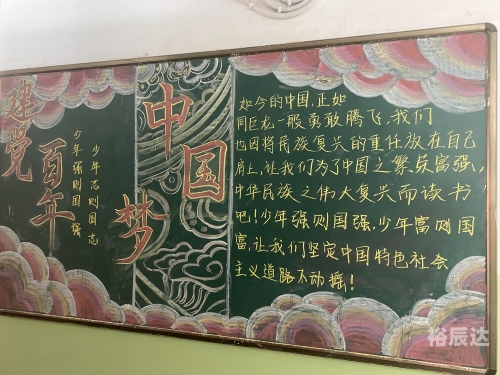 建党
百年
少年强则国强
少年志则国志
中国
梦
如今的中国,正如
同巨龙一般勇敢腾飞,我们
也因将民族复兴的重任放在自己
肩上,让我们为了中国之繁荣富强,
中华民族之伟大复兴而读书
吧!少年强则国强,少年富则国
富,让我们坚定中国特色社会
主义道路不动摇!
裕辰达